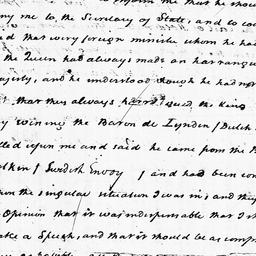 me to the Secretary of State, and to
d that every foreign minister whom he had
the Queen had always made an harrangue
ajesty, and he understood though he had not
t that was always the King
the Baron de Lynden / Dutch
lled upon me and said he came from the B
/ Swedish Envoy / and had been con
upon the singular situation I was in; and they
Opinion that it was indispensable that I sh
ake a Speech, and that it should be as comp